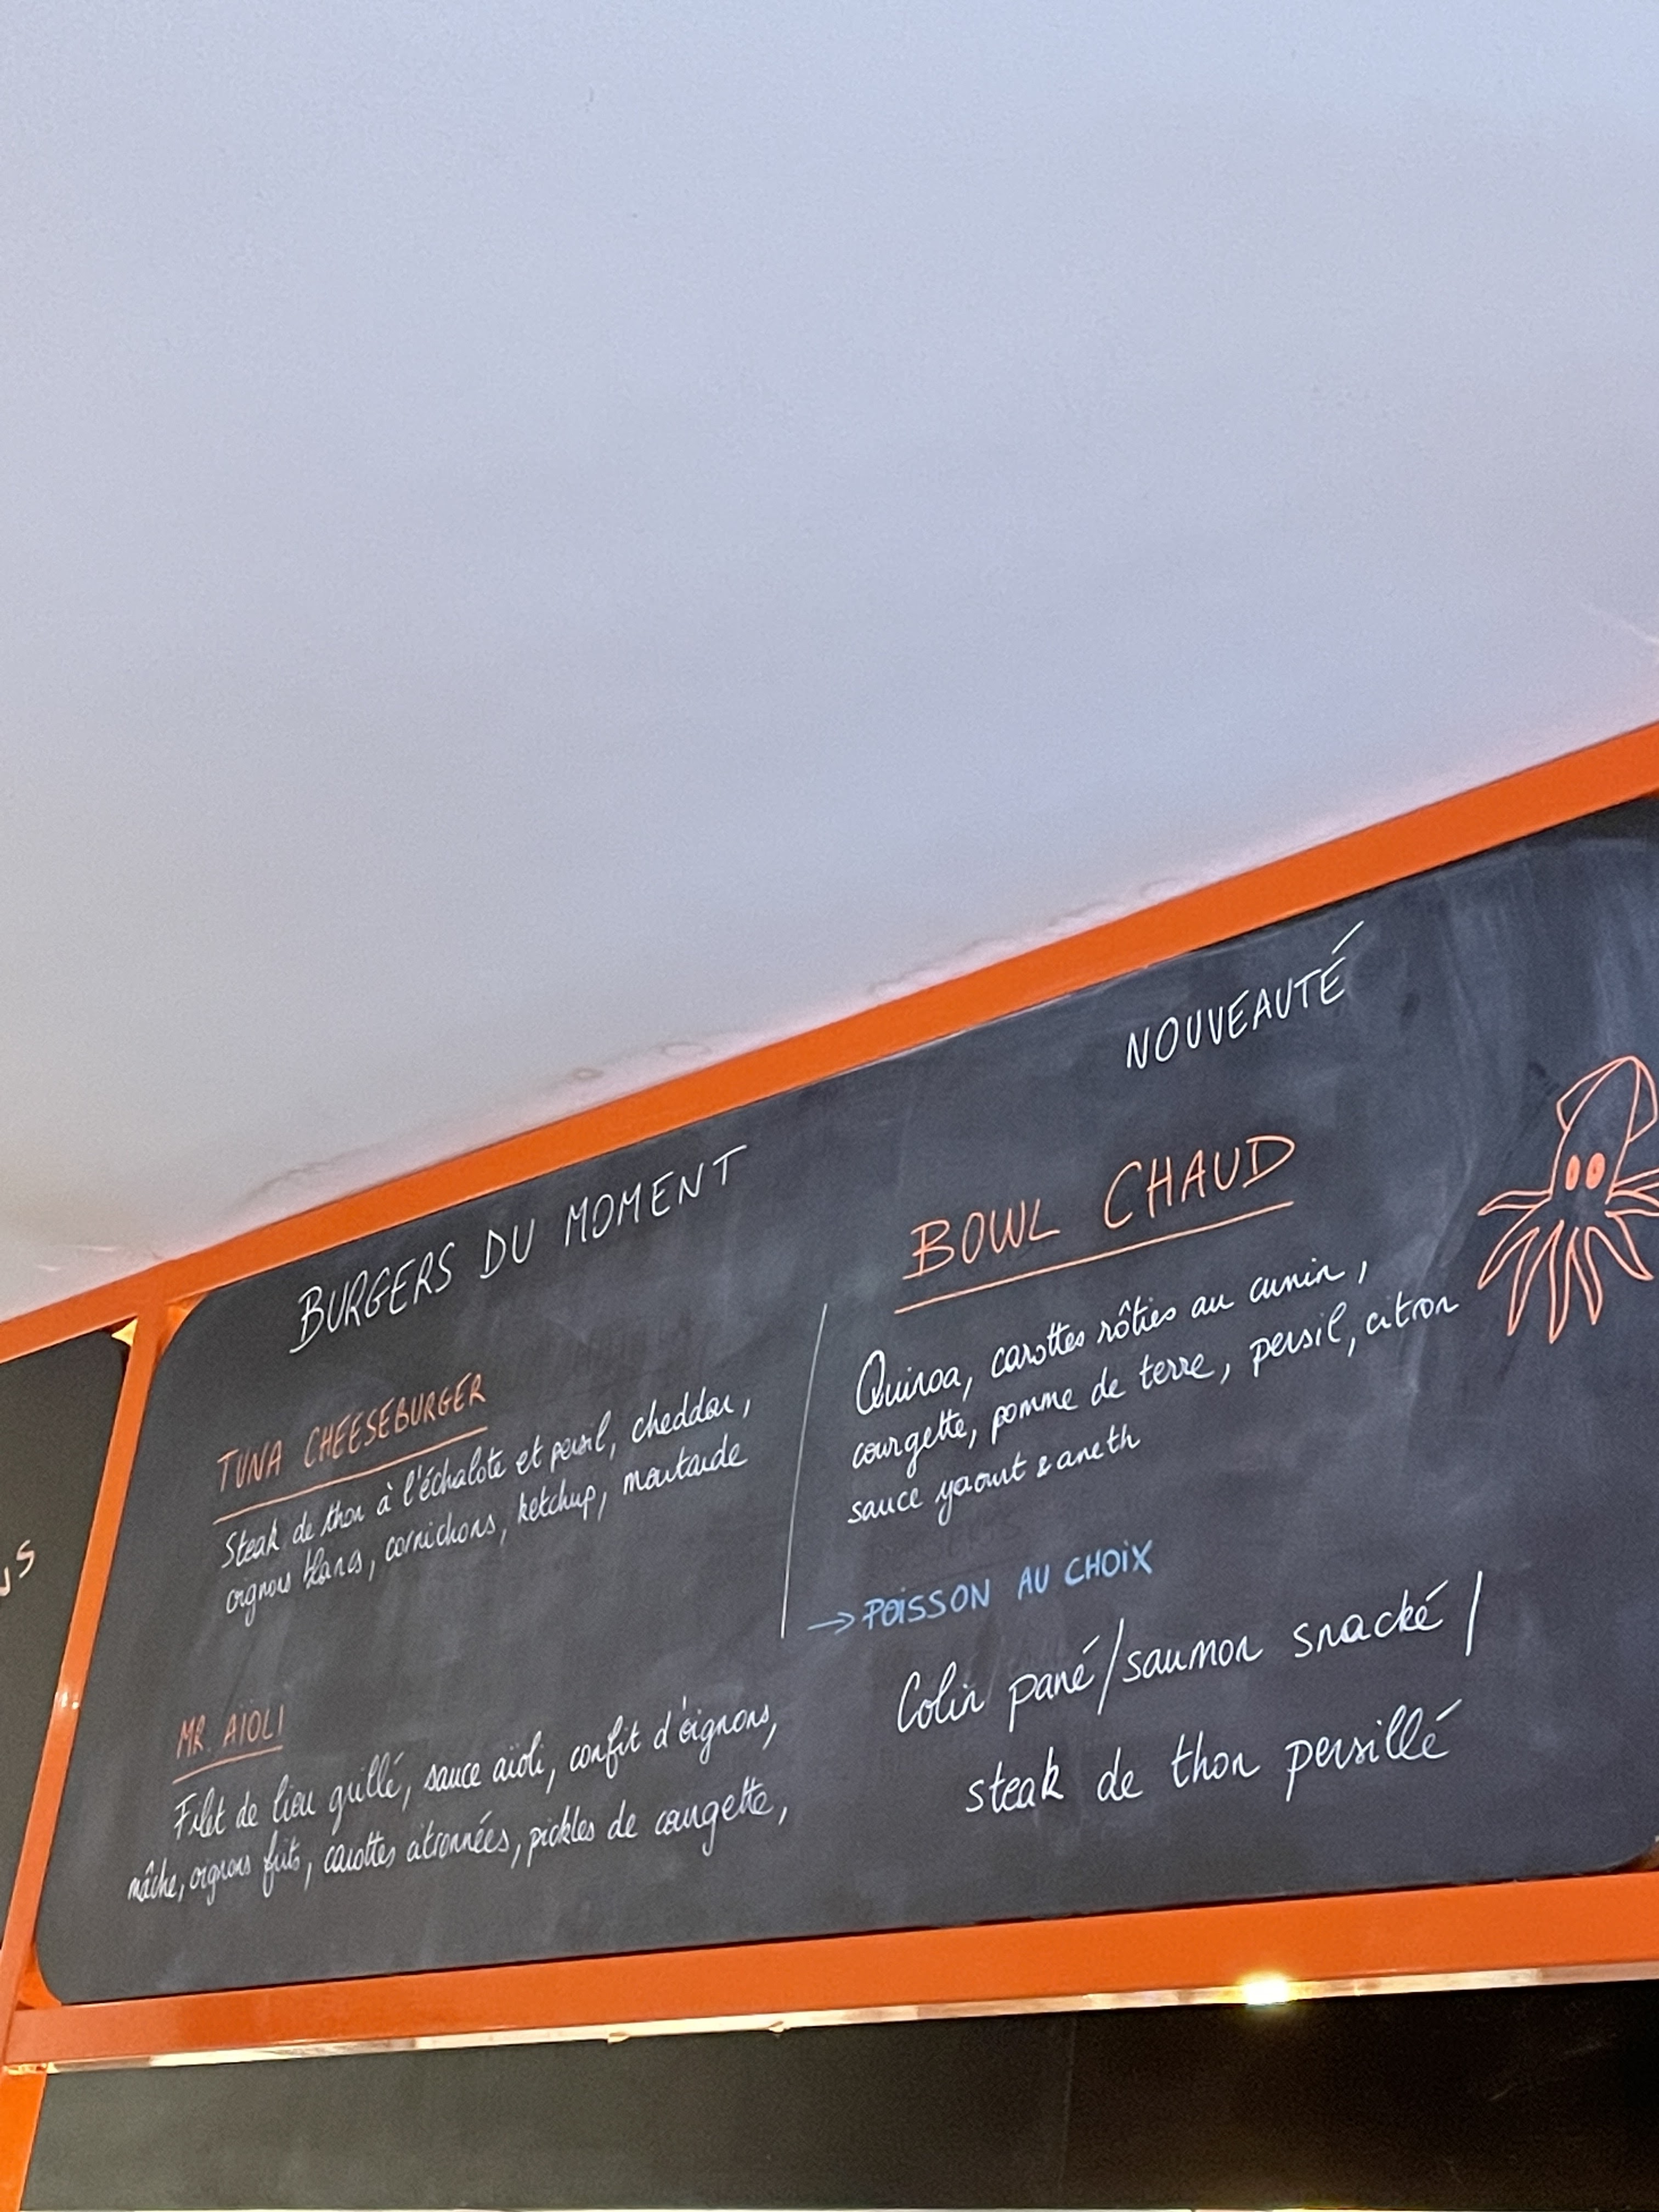 BURGERS DU MOMENT
TUNA CHEESEBURGER
Steak de thon à l'échalote et persil, cheddar,
oignons blancs, cornichons, ketchup, moutarde
MR. AÏOLI
Filet de lieu grillé, sauce aïoli, confit d'oignons,
mâche, oignons frits, carottes citronnées, pickles de courgette,
NOUVEAUTÉ
BOWL CHAUD
Quinoa, carottes rôties au cumin,
courgette, pomme de terre, persil, citron
sauce yaourt & aneth
→ POISSON AU CHOIX
Colin pané/saumon snacké/
steak de thon persillé